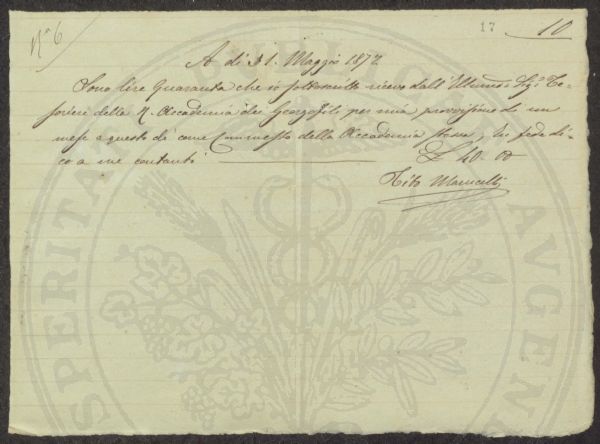 N° 6
17
10
A dì 31. Maggio 1872
Sono lire Quaranta che io sottoscritto ricevo dall' Illmo Sigr Te-
soriere della R. Accademia dei Georgofili per mia provvisione di un
mese a questo dì come Commesso della Accademia stessa, in fede di-
co a me contanti
L. 40. 00
Tito Marucelli
PROSPERITATI
PUBLICAE
AUGENDAE